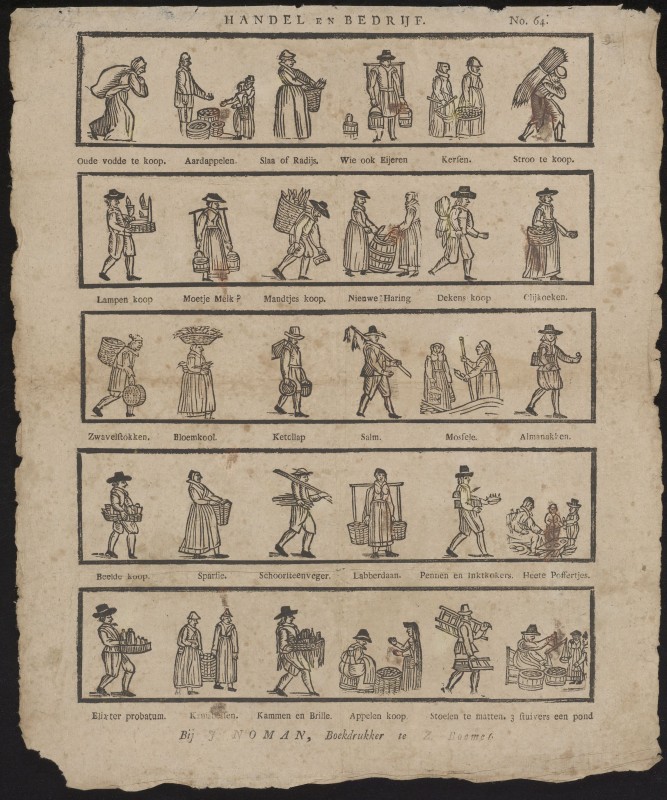 HANDEL EN BEDRIJF. No. 64.
Oude vodde te koop. Aardappelen. Slaa of Radijs. Wie ook Eijeren Kerſen. Stroo te koop.
Lampen koop Moetje Melk? Mandtjes koop. Nieuwe Haring Dekens koop Olijkoeken.
Zwavelſtokken. Bloemkool. Ketellap Salm. Moſſele. Almanakken.
Beelde koop. Sparſie. Schoorſteenveger. Labberdaan. Pennen en Inktkokers. Heete Poffertjes.
Elixter probatum. Kammen en Brille. Appelen koop Stoelen te matten. 3 ſtuivers een pond
Bij J. NOMAN, Boekdrukker te Z. Boemel